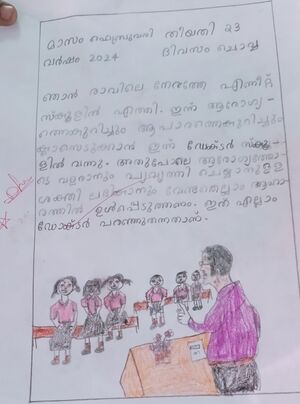 മാസം ഫെബ്രുവരി തീയതി 23
വർഷം 2024 ദിവസം ചൊവ്വ
ഞാൻ രാവിലെ നേരത്തേ എണീറ്റ്
സ്കൂളിൽ എത്തി. ഇന്ന് ആരോഗ്യ-
ത്തെക്കുറിച്ചും ആഹാരത്തെക്കുറിച്ചും
ക്ലാസെടുക്കാൻ ഇന്ന് ഡോക്ടർ സ്കൂ-
ളിൽ വന്നു. അതുപോലെ ആരോഗ്യത്തോ-
ടെ വളരാനും പ്രവൃത്തി ചെയ്യാനുള്ള
ശക്തി ലഭിക്കാനും വേണ്ടതെല്ലാം ആഹാ-
രത്തിൽ ഉൾപ്പെടുത്തണം. ഇത് എല്ലാം
ഡോക്ടർ പറഞ്ഞുതന്നതാണ്.